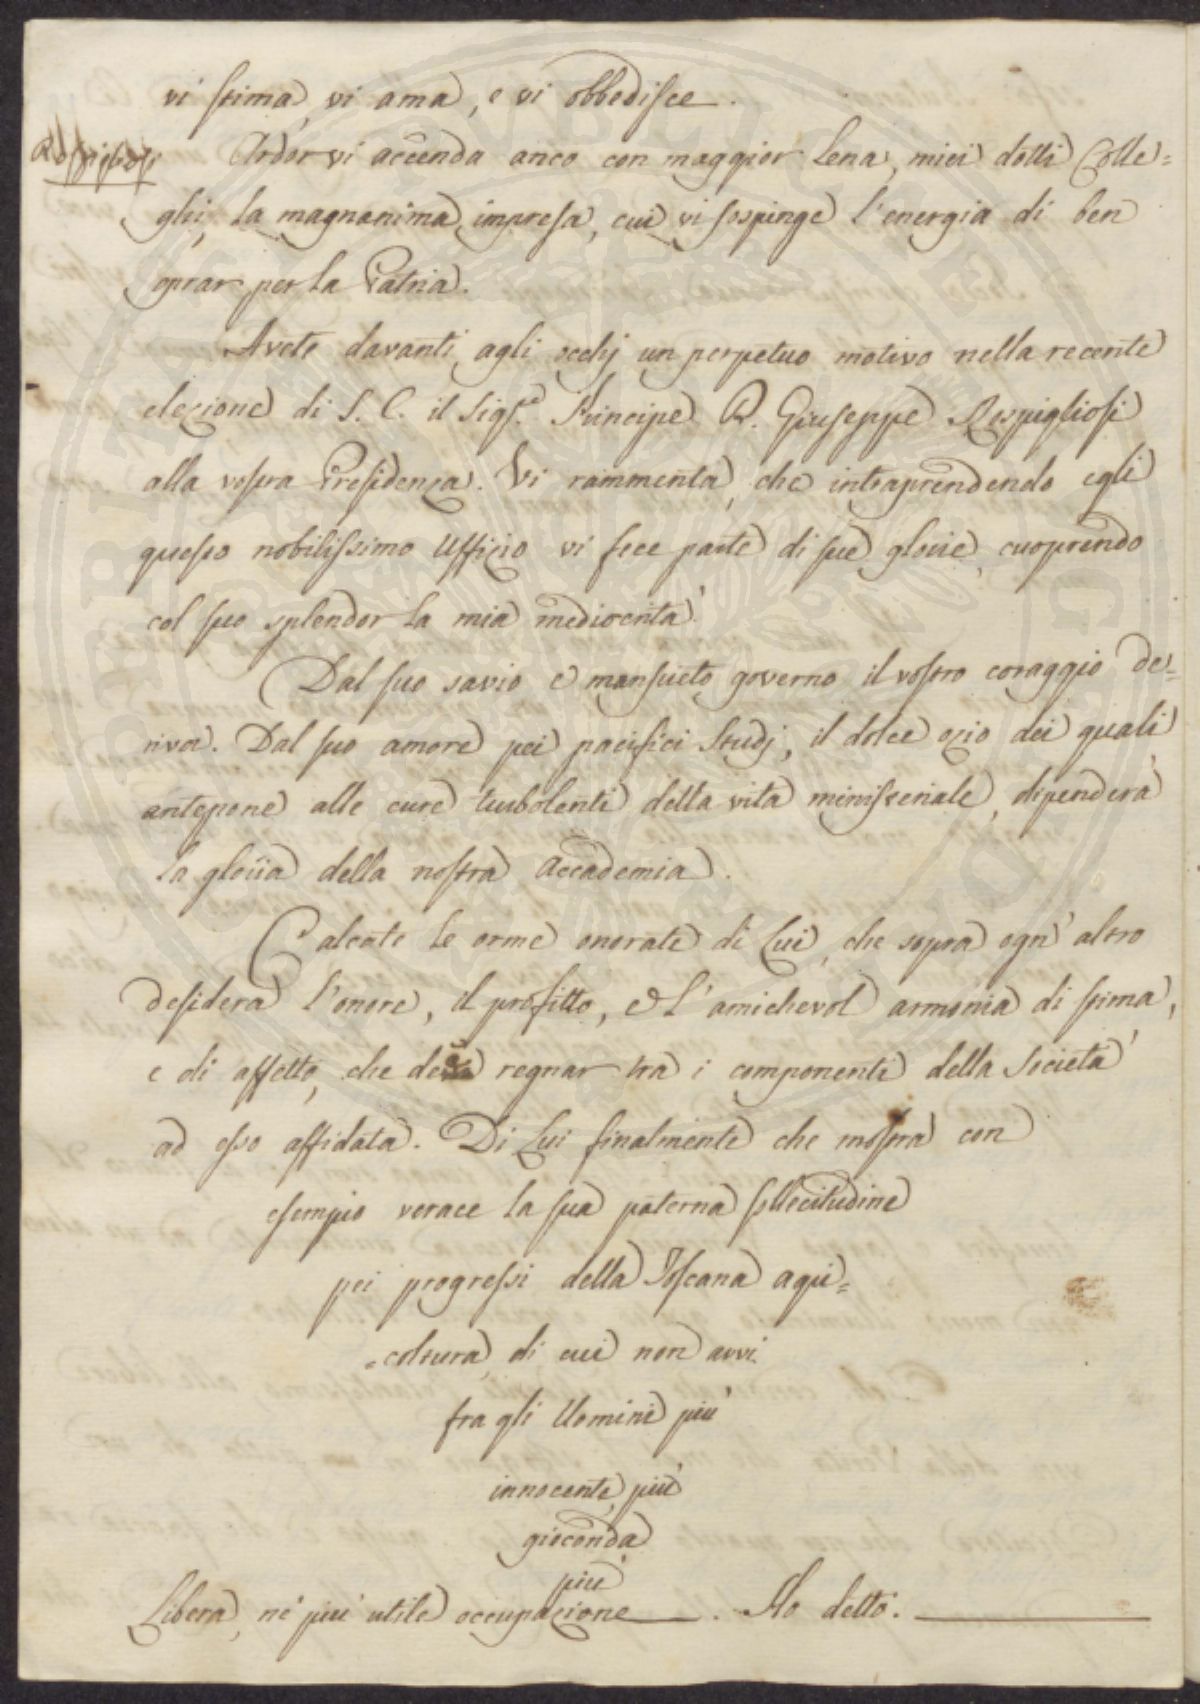 vi stima, vi ama, e vi obbedisce.
Ardor vi accenda anco con maggior lena, miei dotti Colle=
ghi, la magnanima impresa, cui vi sospinge l'energia di ben
oprar per la Patria.
Avete davanti agli occhj un perpetuo motivo nella recente
elezione di S. E. il Sig.re Principe D. Giuseppe Rospigliosi
alla vostra Presidenza. Vi rammenta, che intraprendendo egli
questo nobilissimo Uffizio vi fece parte di sue glorie, cuoprendo
col suo splendor la mia mediocrità.
Dal suo savio e mansueto governo il vostro coraggio de=
riva. Dal suo amore pei pacifici Studj, il dolce ozio dei quali
antepone alle cure turbolenti della vita ministeriale, dipenderà
la gloria della nostra Accademia.
Calcate le orme onorate di Lui, che sopra ogn'altro
desidera l'onore, il profitto, e l'amichevol armonia di stima,
e di affetto, che dee regnar tra i componenti della Società
ad esso affidata. Di Lui finalmente che mostra con
esempio verace la sua paterna sollecitudine
pei progressi della Toscana agri=
=coltura, di cui non avvi
fra gli Uomini più
innocente, più
gioconda
più
Libera, nè più utile occupazione. Ho detto.